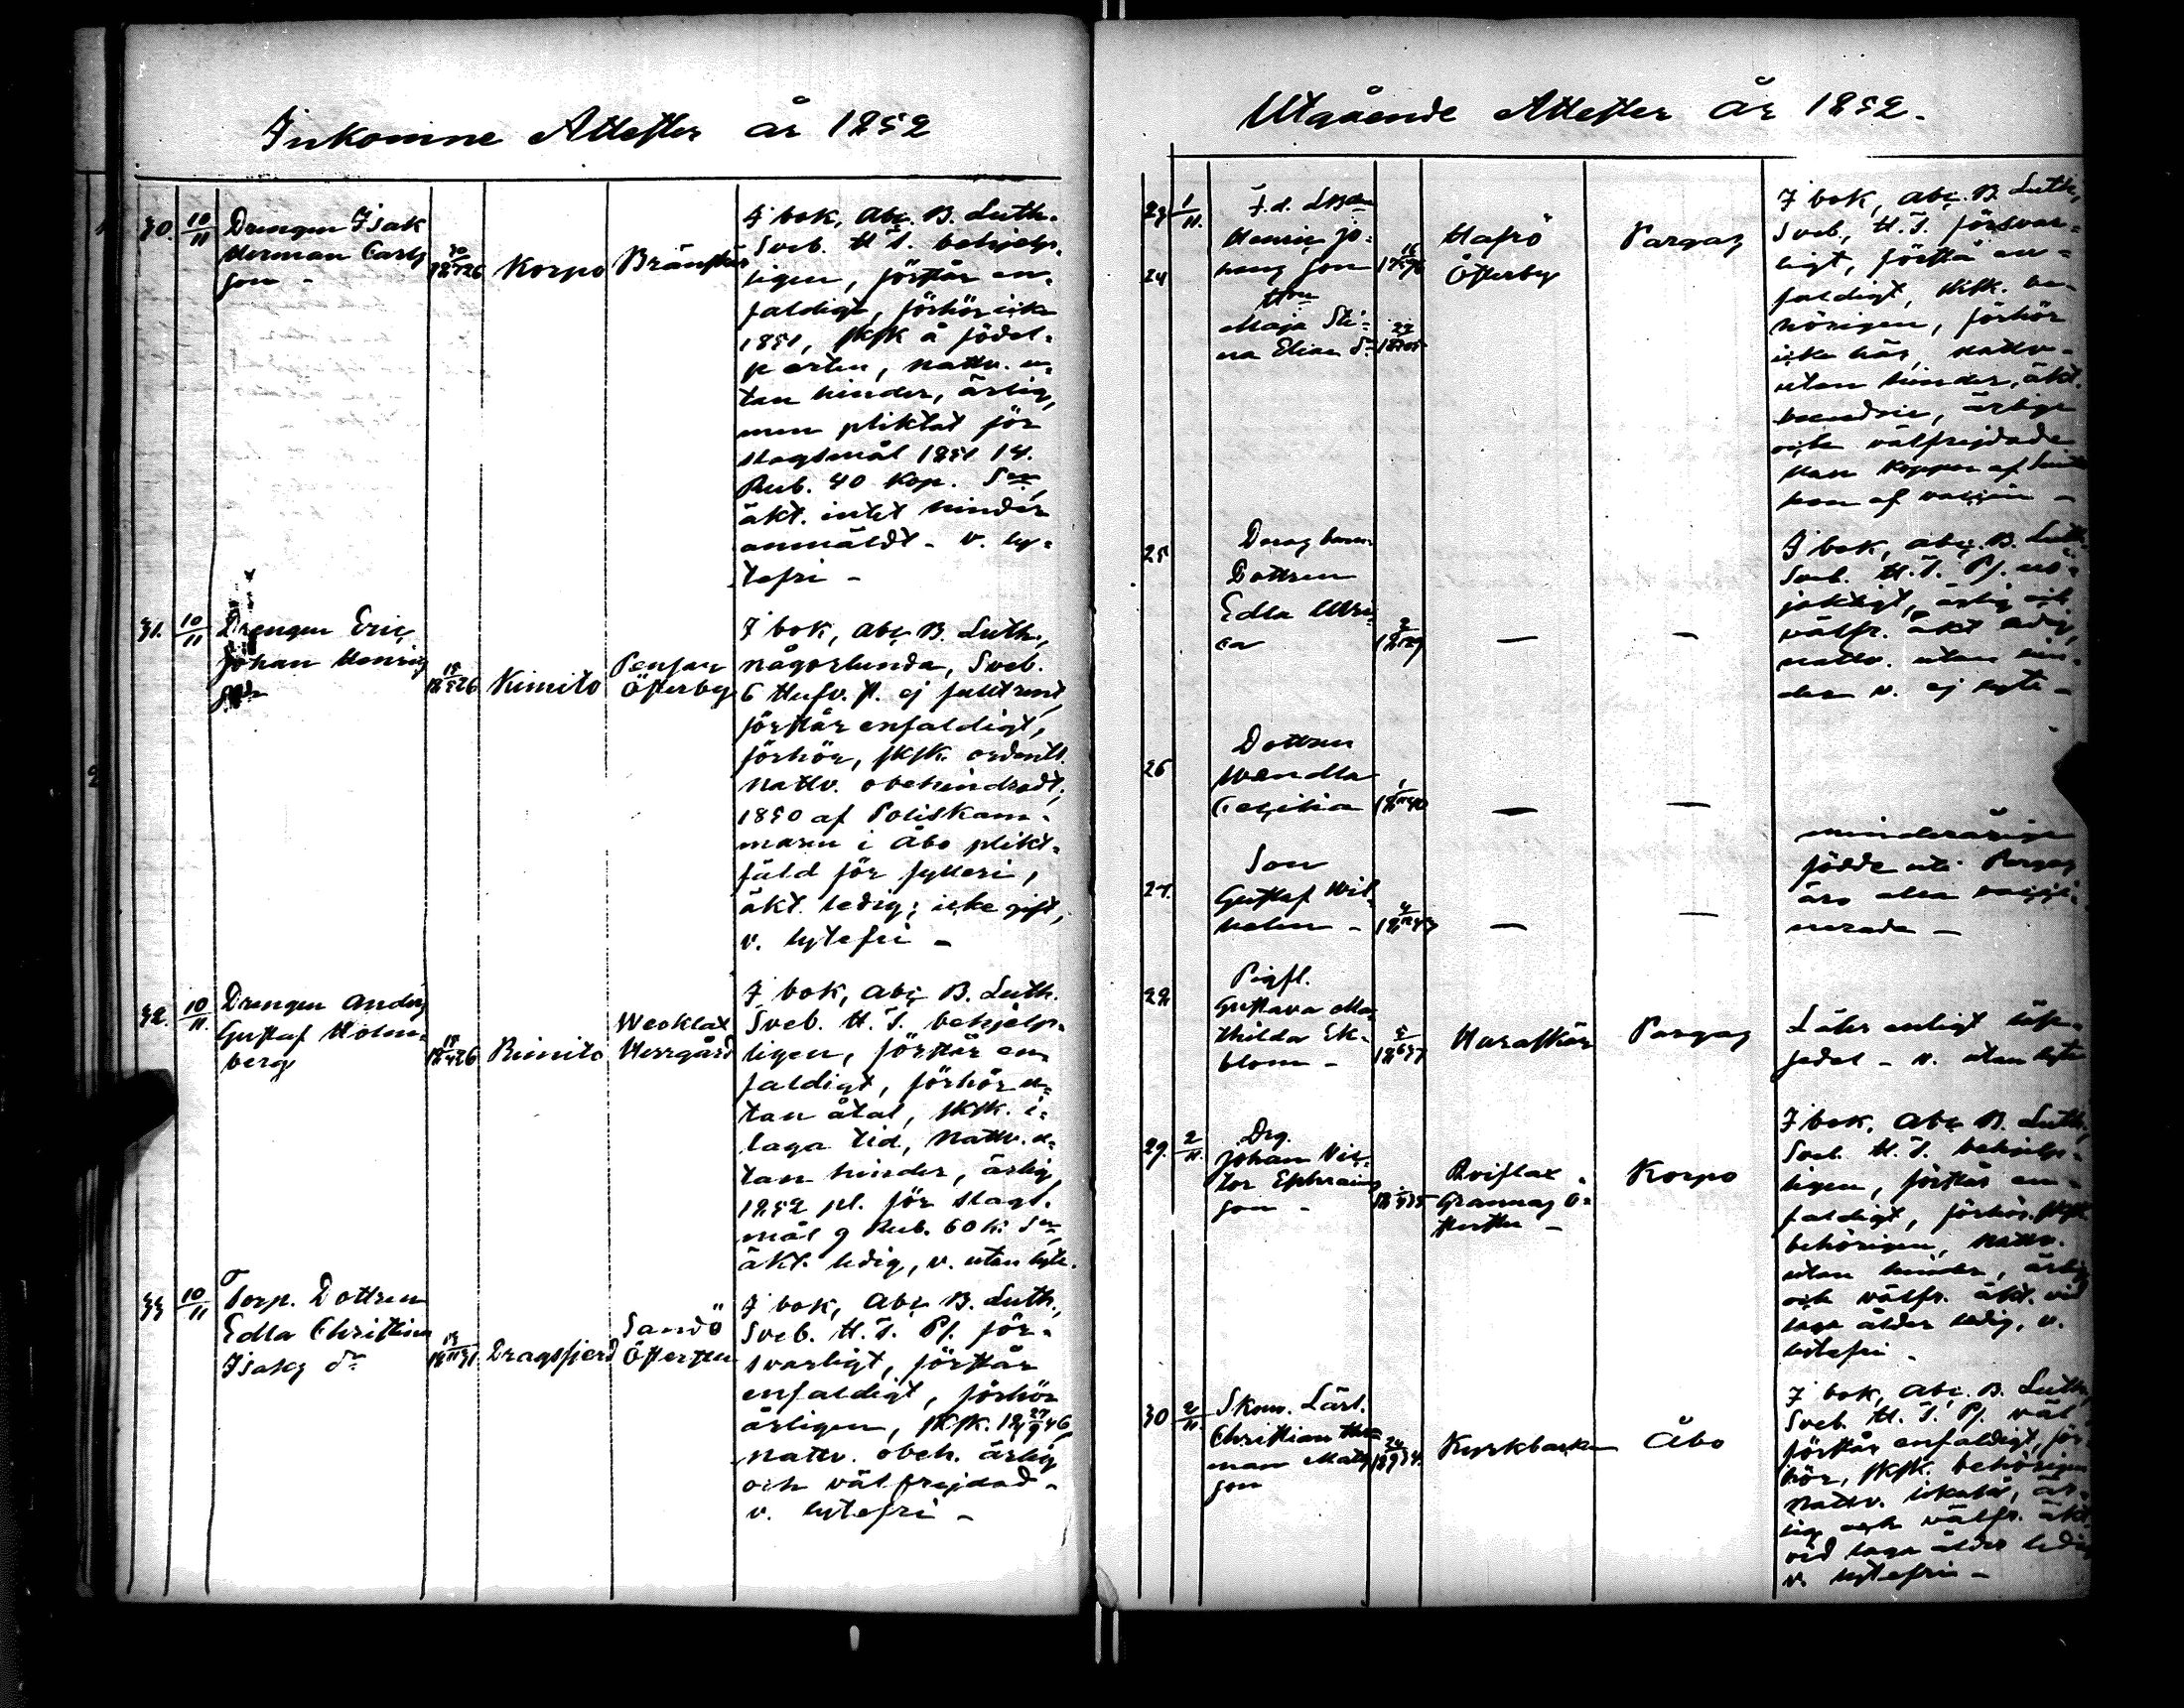 Inkomne Attester år 1852
30. 10/11 Drengen Isak
Herman Carls
son -
30/12 1826 Korpo Bränskär
I bok, Abc. B. Luth.
Sveb. H. T. behjelp-
ligen, förstår en-
faldigt, förhör icke
1851, sksk å födel-
se orten, nattv. u-
tan hinder, ärlig,
men pliktat för
slagsmål 1851 14.
Rub. 40 Kop. Sr,
äkt. intet hinder
anmäldt - v. ly-
tefri -
31. 10/11 Drengen Eric
Johan Henrics
son
18/5 1826 Kimito Pensar
Österby
I bok, Abc B. Luth.,
någorlunda, Sveb.
6 Hufv. st. ej fullt rent,
förstår enfaldigt,
förhör, sksk. ordentl.
nattv. obehindradt,
1850 af Poliskam-
maren i Åbo plikt-
fäld för fylleri,
äkt. ledig; icke gift,
v. lytefri -
32. 10/11. Drengen Anders
Gustaf Holm-
berg
18/4 1826 Kimito Westlax
Herrgård
I bok, Abc B. Luth.
Sveb. H. T. behjelp-
ligen, förstår en-
faldigt, förhör u-
tan åtal, sksk. i
laga tid, nattv. u-
tan hinder, ärlig,
1852 pl. för slags-
mål 9 Rub. 60 k. Sr,
äkt. ledig, v. utan lyte.
33 10/11 Torp. Dottren
Edla Christina
Isaks dr
1831 Dragsfjerd Sandö
Österste
I bok, Abc B. Luth.,
Sveb. H. T. Ps. för-
svarligt, förstår
enfaldigt, förhör
årligen, sksk. 27/9 1846,
nattv. obeh. ärlig
och välfrejdad -
v. lytefri -
Utgående Attester år 1852.
23 1/11. F.d.
24 Henric Jo-
hans son
Hru
Maja Sti-
na Elias dr
Hafrö
Österby
Pargas
I bok, Abc. B. Luth.,
Sveb., H. T. försvar-
ligt, förstå en-
faldigt, sksk. be-
hörigen, förhör
icke här, nattv.
utan hinder, äkt.
ärliga
och välfrejdade
han koppor af
hon af vaccin -
25 Dottren
Edla Ulri-
ca
1829 - -
I bok, Abc. B. Luth.
Sveb. H. T. Ps. nö-
jaktigt, ärlig och
välfr. äkt ledig,
nattv. utan hin-
der v. ej lyte -
26 Dottren
Wendla
Cecilia
1/11 1840 - -
27. Son
Gustaf Wil-
helm -
1843 - -
minderårige
födde uti Pargas
äro alla vacci-
nerade -
28 Pigfl.
Gustava Ma-
thilda Ek-
blom -
5/6 1837 Haraskär Pargas
Läser enligt läse-
sedel - v. utan lyte
29. 2/11. Drg.
Johan Vic-
tor Ephraims
son -
Roiflax
Grannas
Korpo
I bok, Abc B. Luth.,
Sveb. H. T. behjelp-
ligen, förstår en-
faldigt, förhör, sksk.
behörigen, nattv.
utan hinder, ärlig
och välfr. äkt. vid
laga ålder ledig, v.
lytefri -
30 2/11. Skom. Lärl.
Christian Her-
man Mats
son
24/9 1834. Kyrkbacken Åbo
I bok, Abc. B. Luth.,
Sveb. H. T. Ps. väl,
förstår enfaldigt, för-
hör, sksk. behörigen
nattv. är-
lig och välfr. äkt.
vid laga ålder ledig
v. lytefri -